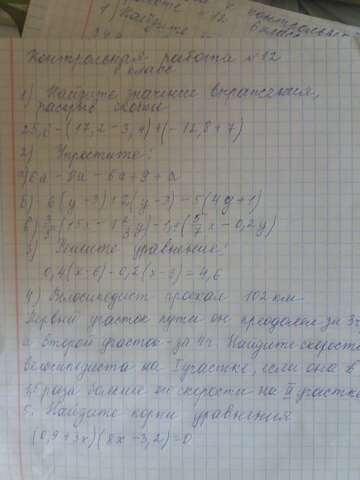 1) Найдите
Контрольная работа №12
6 класс
1) Найдите значение выражения,
раскрыв скобки
25,6-(17,2-3,4)+(-12,8+7)
2) Упростите:
6a-8a-6a+9+a
б) 6(y-3)+2(y-3)-5(4y+1)
3) Решите уравнение:
0,4(x-6)-0,2(x-)=4,6
4) Велосипедист проехал 102 км
Первый участок пути он преодолел за 3ч
а второй участок - за 4ч Найдите скорость
велосипедиста на I участке, если она в
раза больше скорости на II участке
5. Найдите корни уравнения
(0,9+3x)(8x-3,2)=0